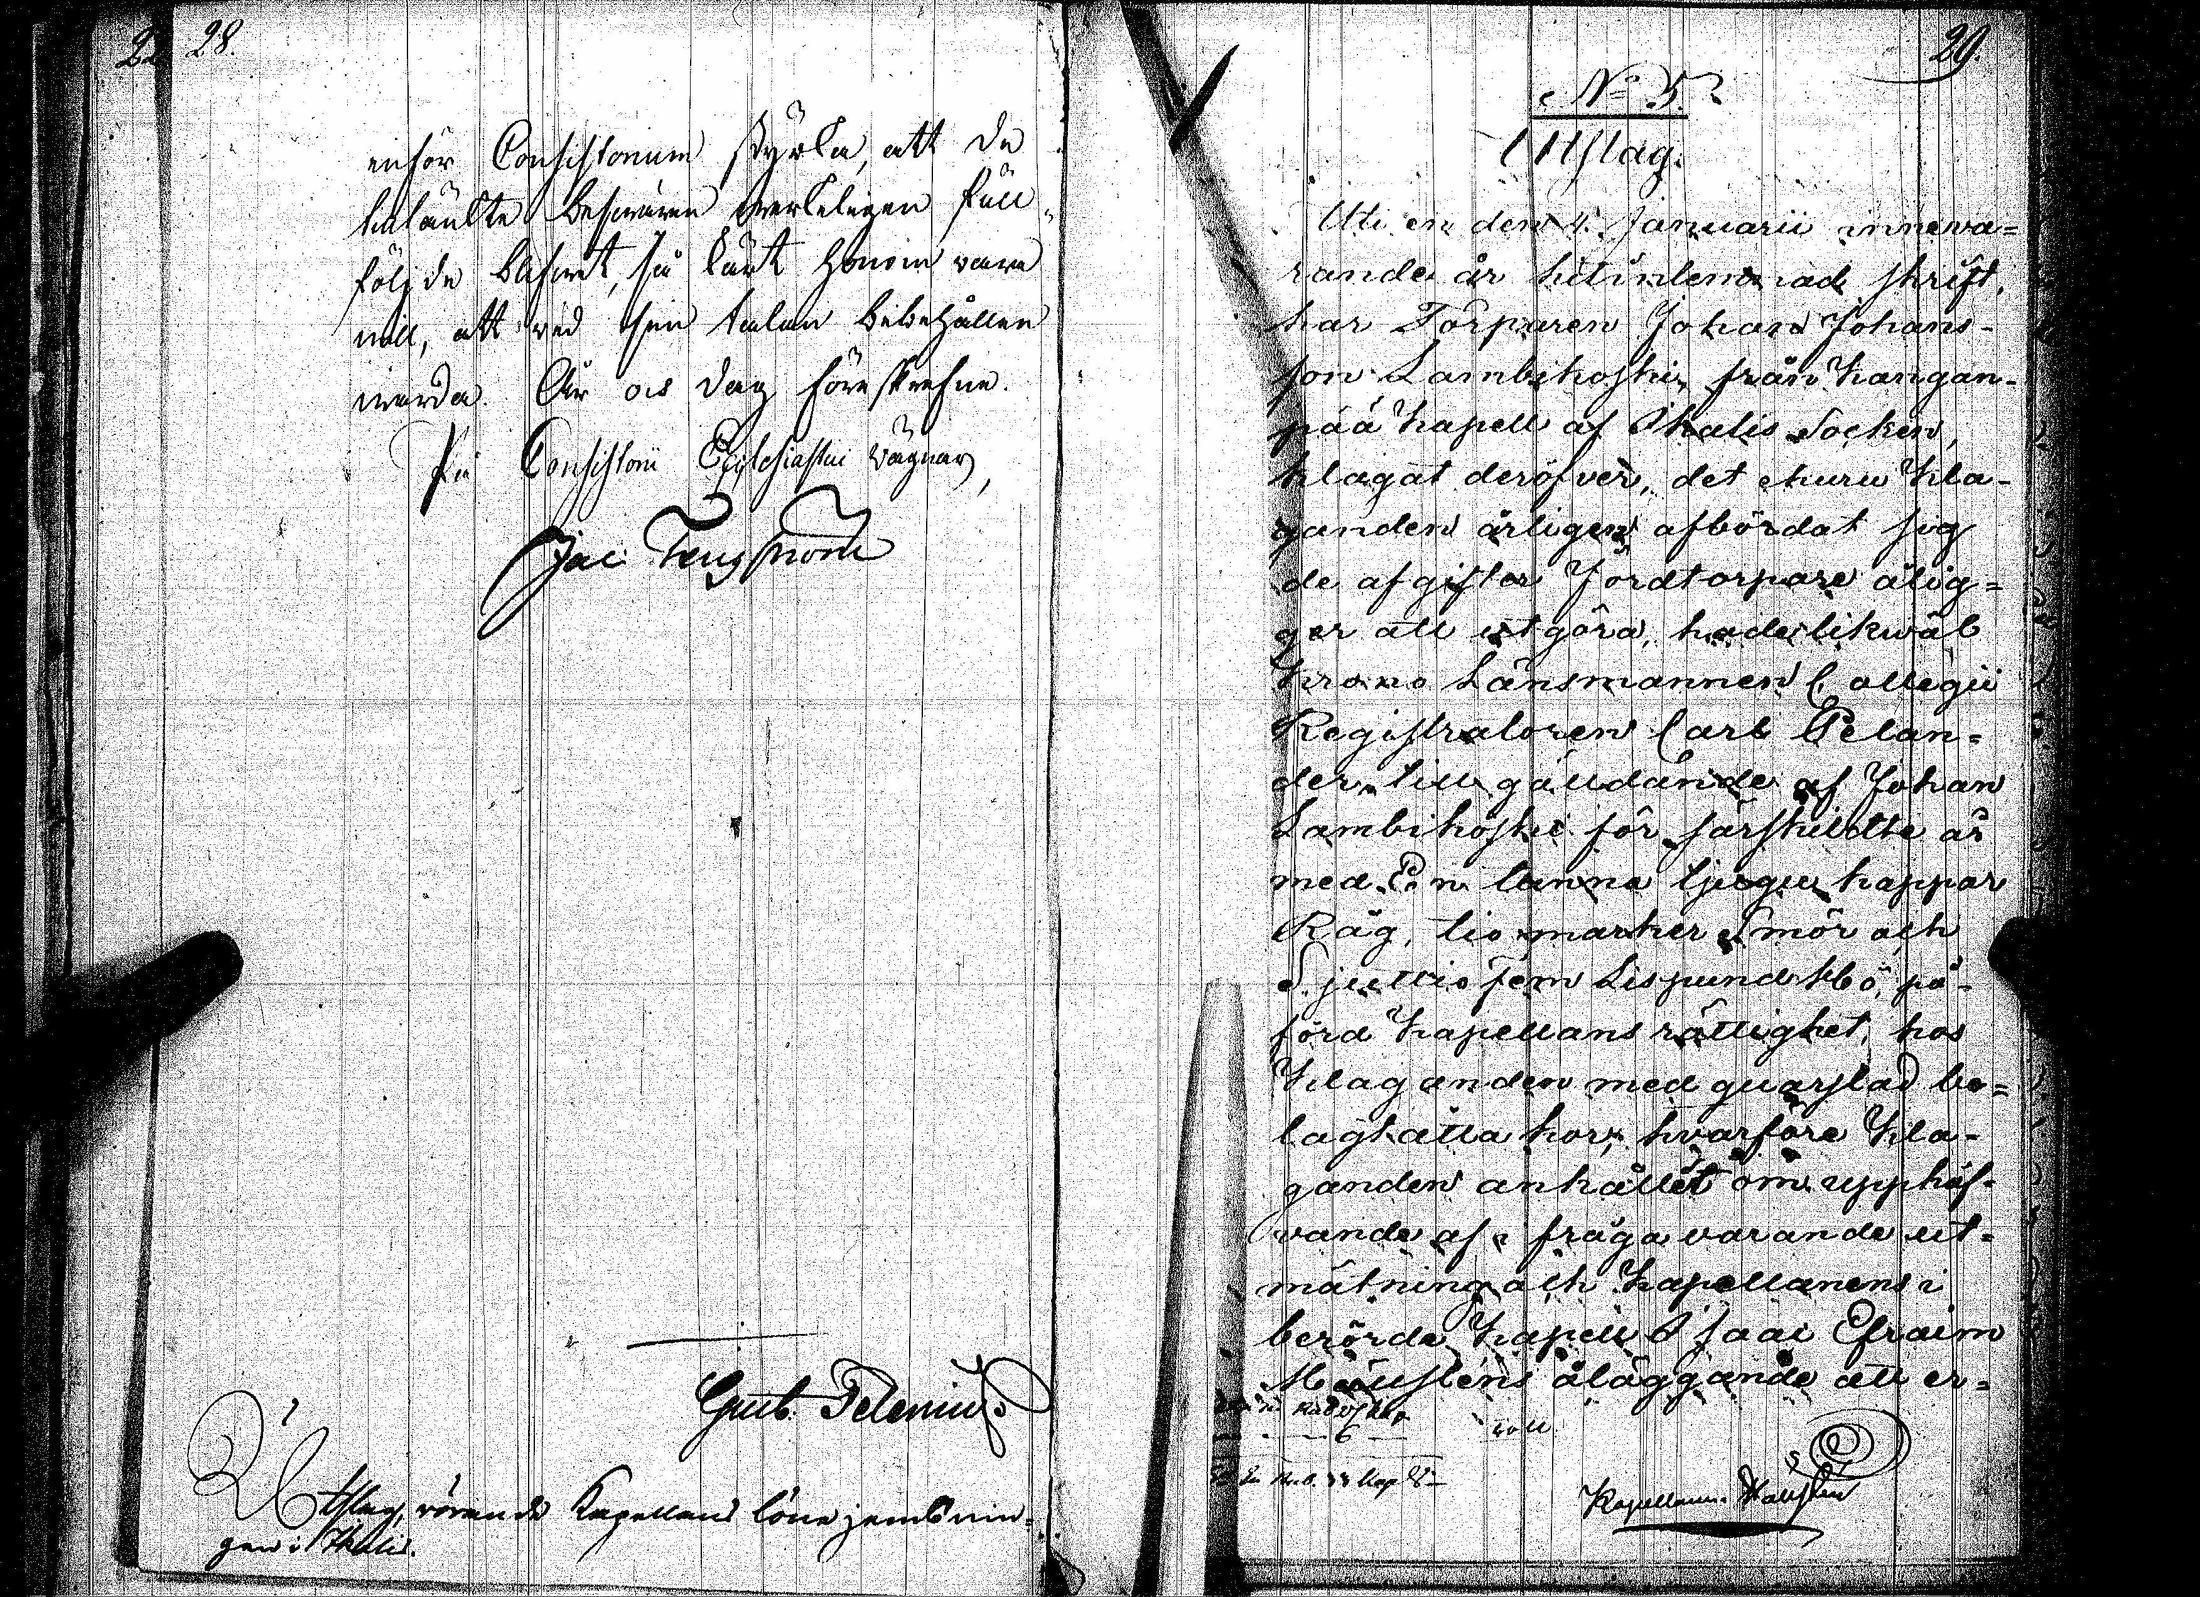 28.
inför Consistorium styrka, att de
besvären verkeligen full¬
följde blifvit, så lärt honom vara
all, att vid sin talan bibehållen
warda. År och dag föreskrefne.
På Consistorii Ecclesiastici vägnar,
Jac: Tengström
Gust. Pelenius
Utslag, rörande Kapellans lönejemknin¬
gen i Ikalis.
29.
No 5.
Utslag.
Uti en den 4. Januarii innewa=
rande år hitinlemnad skrift,
har Torparen Johan Johans-
son Lambikoski, från Kangan-
pää Kapell af Ikalis Socken,
klagat deröfver, det ehuru Kla-
ganden årligen afbördat sig
de afgifter Jordtorpare ålig=
ger att utgöra, hade likwäl
Krono Länsmannen Collegii
Registratoren Carl Pelan=
der till gäldande af Johan
Lambikoski för särskildte år
med En tunna tjugu kappar
Råg, tio marker Smör och
Sjuttiofem Lispund Hö, på-
förd Kapellans rättighet, hos
Klaganden med quarstad be=
lagt åtta kor, hvarföre Kla-
ganden anhållit om upphäf-
vande af i fråga varande ut=
mätning och Kapellanens i
berörde Kapell Isaac Efraim
Hällsténs åläggande att er=
Kapellanen Hällstén